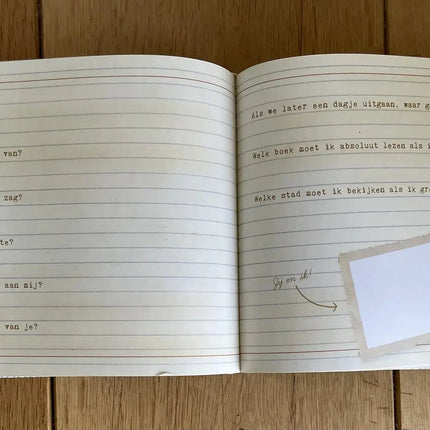 van?
zag?
te?
aan mij?
van je?
Als we later een dagje uitgaan, waar g
Welk boek moet ik absoluut lezen als i
Welke stad moet ik bekijken als ik gro
Jij en ik!